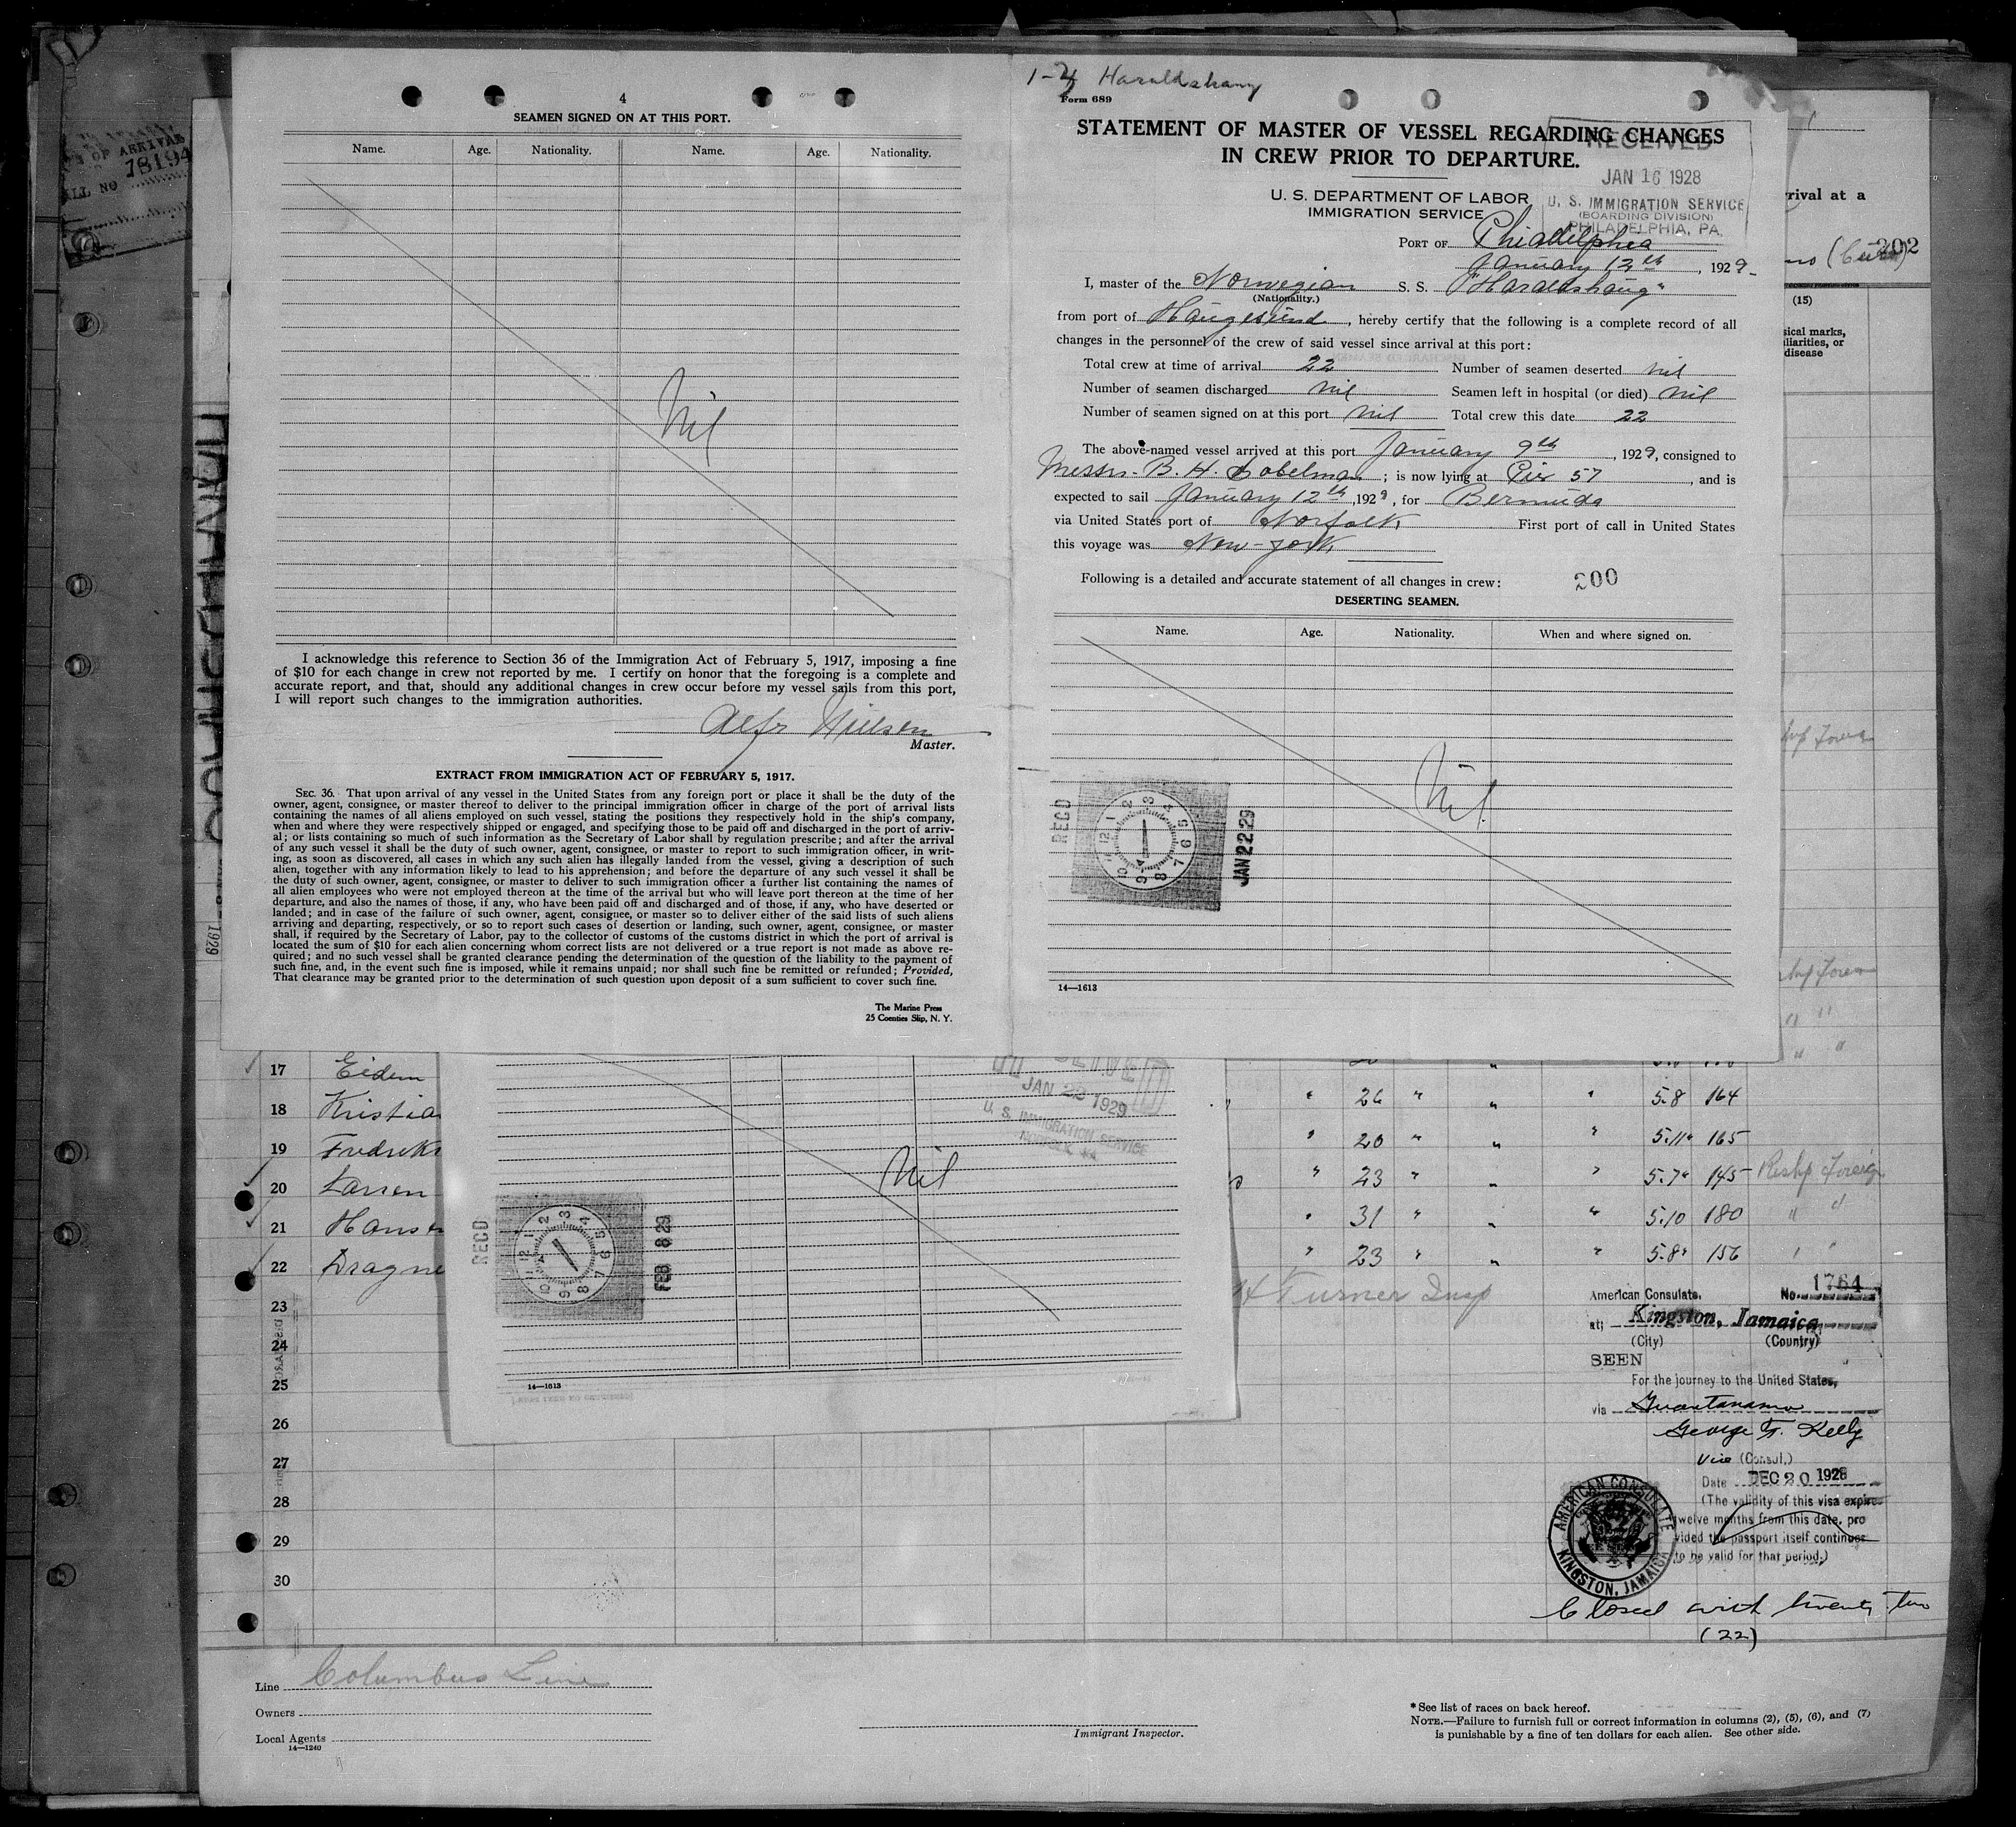 4
SEAMEN SIGNED ON AT THIS PORT.
Name. Age. Nationality. Name. Age. Nationality.
Nil
I acknowledge this reference to Section 36 of the Immigration Act of February 5, 1917, imposing a fine
of $10 for each change in crew not reported by me. I certify on honor that the foregoing is a complete and
accurate report, and that, should any additional changes in crew occur before my vessel sails from this port,
I will report such changes to the immigration authorities.
Alfr Nielsen
Master.
EXTRACT FROM IMMIGRATION ACT OF FEBRUARY 5, 1917.
SEC. 36. That upon arrival of any vessel in the United States from any foreign port or place it shall be the duty of the
owner, agent, consignee, or master thereof to deliver to the principal immigration officer in charge of the port of arrival lists
containing the names of all aliens employed on such vessel, stating the positions they respectively hold in the ship's company,
when and where they were respectively shipped or engaged, and specifying those to be paid off and discharged in the port of arriv-
al; or lists containing so much of such information as the Secretary of Labor shall by regulation prescribe; and after the arrival
of any such vessel it shall be the duty of such owner, agent, consignee, or master to report to such immigration officer, in writ-
ing, as soon as discovered, all cases in which any such alien has illegally landed from the vessel, giving a description of such
alien, together with any information likely to lead to his apprehension; and before the departure of any such vessel it shall be
the duty of such owner, agent, consignee, or master to deliver to such immigration officer a further list containing the names of
all alien employees who were not employed thereon at the time of the arrival but who will leave port thereon at the time of her
departure, and also the names of those, if any, who have been paid off and discharged and of those, if any, who have deserted or
landed; and in case of the failure of such owner, agent, consignee, or master so to deliver either of the said lists of such aliens
arriving and departing, respectively, or so to report such cases of desertion or landing, such owner, agent, consignee, or master
shall, if required by the Secretary of Labor, pay to the collector of customs of the customs district in which the port of arrival is
located the sum of $10 for each alien concerning whom correct lists are not delivered or a true report is not made as above re-
quired; and no such vessel shall be granted clearance pending the determination of the question of the liability to the payment of
such fine, and, in the event such fine is imposed, while it remains unpaid; nor shall such fine be remitted or refunded; Provided,
That clearance may be granted prior to the determination of such question upon deposit of a sum sufficient to cover such fine.
The Marine Press
25 Coenties Slip, N. Y.
Haraldshaug
Form 689
STATEMENT OF MASTER OF VESSEL REGARDING CHANGES
IN CREW PRIOR TO DEPARTURE.
RECEIVED
JAN 16 1928
U. S. IMMIGRATION SERVICE
(BOARDING DIVISION)
PHILADELPHIA, PA.
U. S. DEPARTMENT OF LABOR
IMMIGRATION SERVICE
PORT OF Phiadelphia
January 12th, 1929.
I, master of the Norwegian S. S. "Haraldshaug"
(Nationality.)
from port of Haugesund, hereby certify that the following is a complete record of all
changes in the personnel of the crew of said vessel since arrival at this port:
Total crew at time of arrival 22 Number of seamen deserted nil
Number of seamen discharged nil Seamen left in hospital (or died) nil
Number of seamen signed on at this port nil Total crew this date 22
The above-named vessel arrived at this port January 9th, 1929, consigned to
Messrs. B. H. Sobelman; is now lying at Pier 57, and is
expected to sail January 12th, 1929, for Bermuda
via United States port of Norfolk First port of call in United States
this voyage was New-York
Following is a detailed and accurate statement of all changes in crew: 200
DESERTING SEAMEN.
Name. Age. Nationality. When and where signed on.
Nil.
RECD
JAN 22 29
14—1613
rival at a
202
(15)
sical marks,
liarities, or
disease
78194
1929
17 Eidem
18 Kristia
26 " " " 5.8 164
19 Fredriks
20 " " " 5.11" 165
20 Larsen
23 " " " 5.7" 145 Reshp Foreign
21 Hansen
31 " " " 5.10 180 " "
22 Dragne
23 " " " 5.8" 156 " "
23
24
25
26
27
28
29
30
JAN 22 1929
U. S. IMMIGRATION SERVICE
NORFOLK, VA
Nil
RECD
FEB 8 29
14—1613
Turner Insp
American Consulate. No. 1764
at; Kingston, Jamaica
(City) (Country)
SEEN
For the journey to the United States,
via Guantanamo
George F. Kelly
Vice (Consul,)
Date DEC 20 1928
(The validity of this visa expires
twelve months from this date, pro
vided the passport itself continues
to be valid for that period.)
AMERICAN CONSULATE
KINGSTON, JAMAICA
Closed with twenty two
(22)
Line Columbus Line
Owners
Local Agents
14—1240
Immigrant Inspector.
* See list of races on back hereof.
NOTE.—Failure to furnish full or correct information in columns (2), (5), (6), and (7)
is punishable by a fine of ten dollars for each alien. See other side.